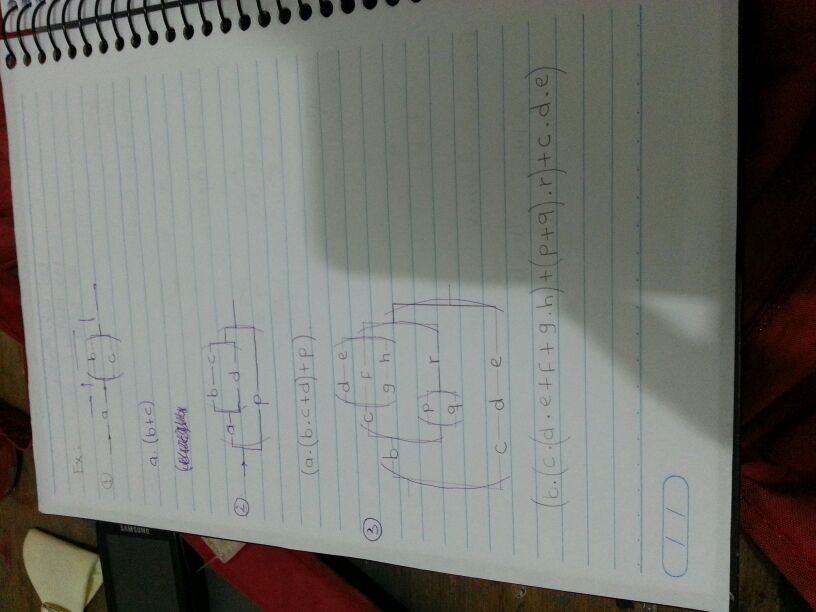 Ex:
① a b c
a.(b+c)
② a b c d p
(a.(b.c+d)+p)
③ b c d e f g h p q r c d e
(b.(c.(d.e+f+g.h)+(p+q).r)+c.d.e)
SAMSUNG